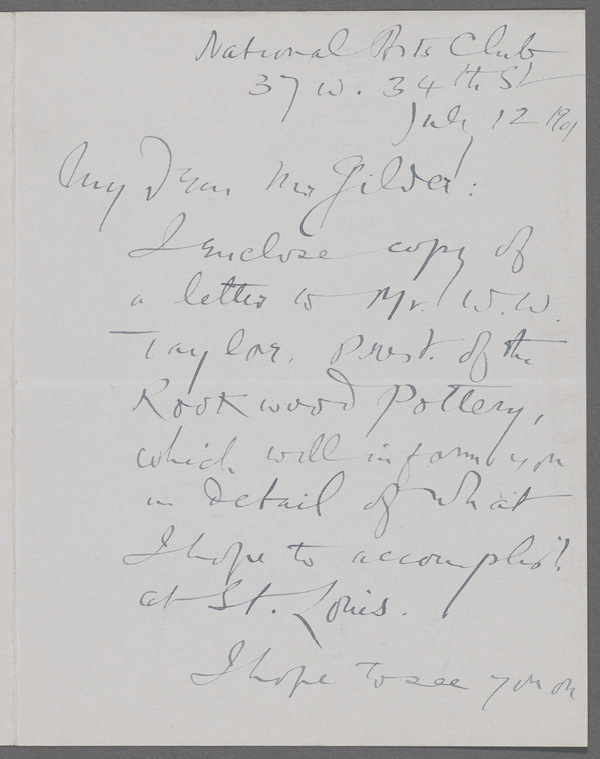 National Arts Club
37 W. 34th St
July 12 1901
My Dear Mr Gilder:
I enclose copy of
a letter to Mr. W. W.
Taylor, Prest. of the
Rookwood Pottery,
which will inform you
in detail of what
I hope to accomplish
at St. Louis.
I hope to see you on